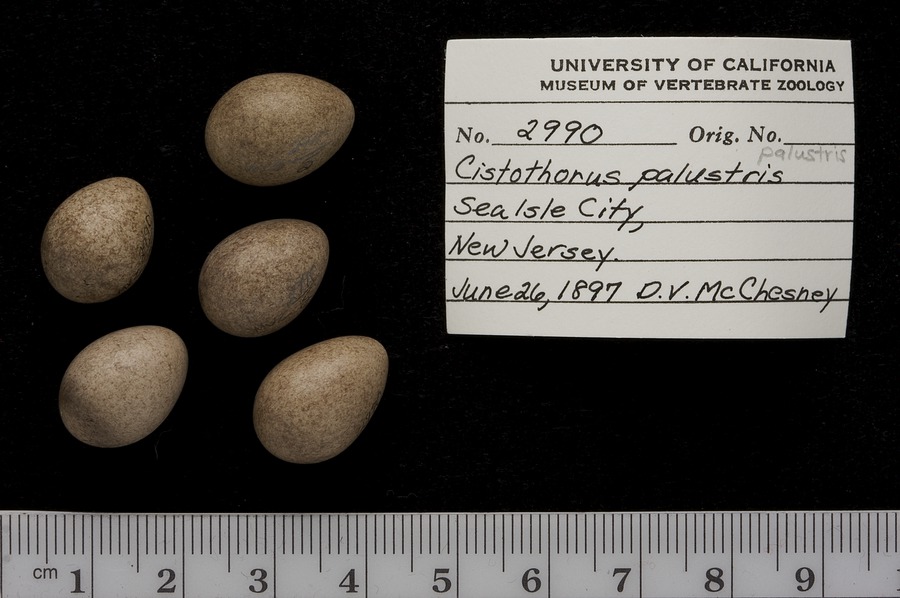 UNIVERSITY OF CALIFORNIA
MUSEUM OF VERTEBRATE ZOOLOGY
No. 2990 Orig. No.
palustris
Cistothorus palustris
Sea Isle City,
New Jersey.
June 26, 1897 D.V. McChesney
cm 1 2 3 4 5 6 7 8 9